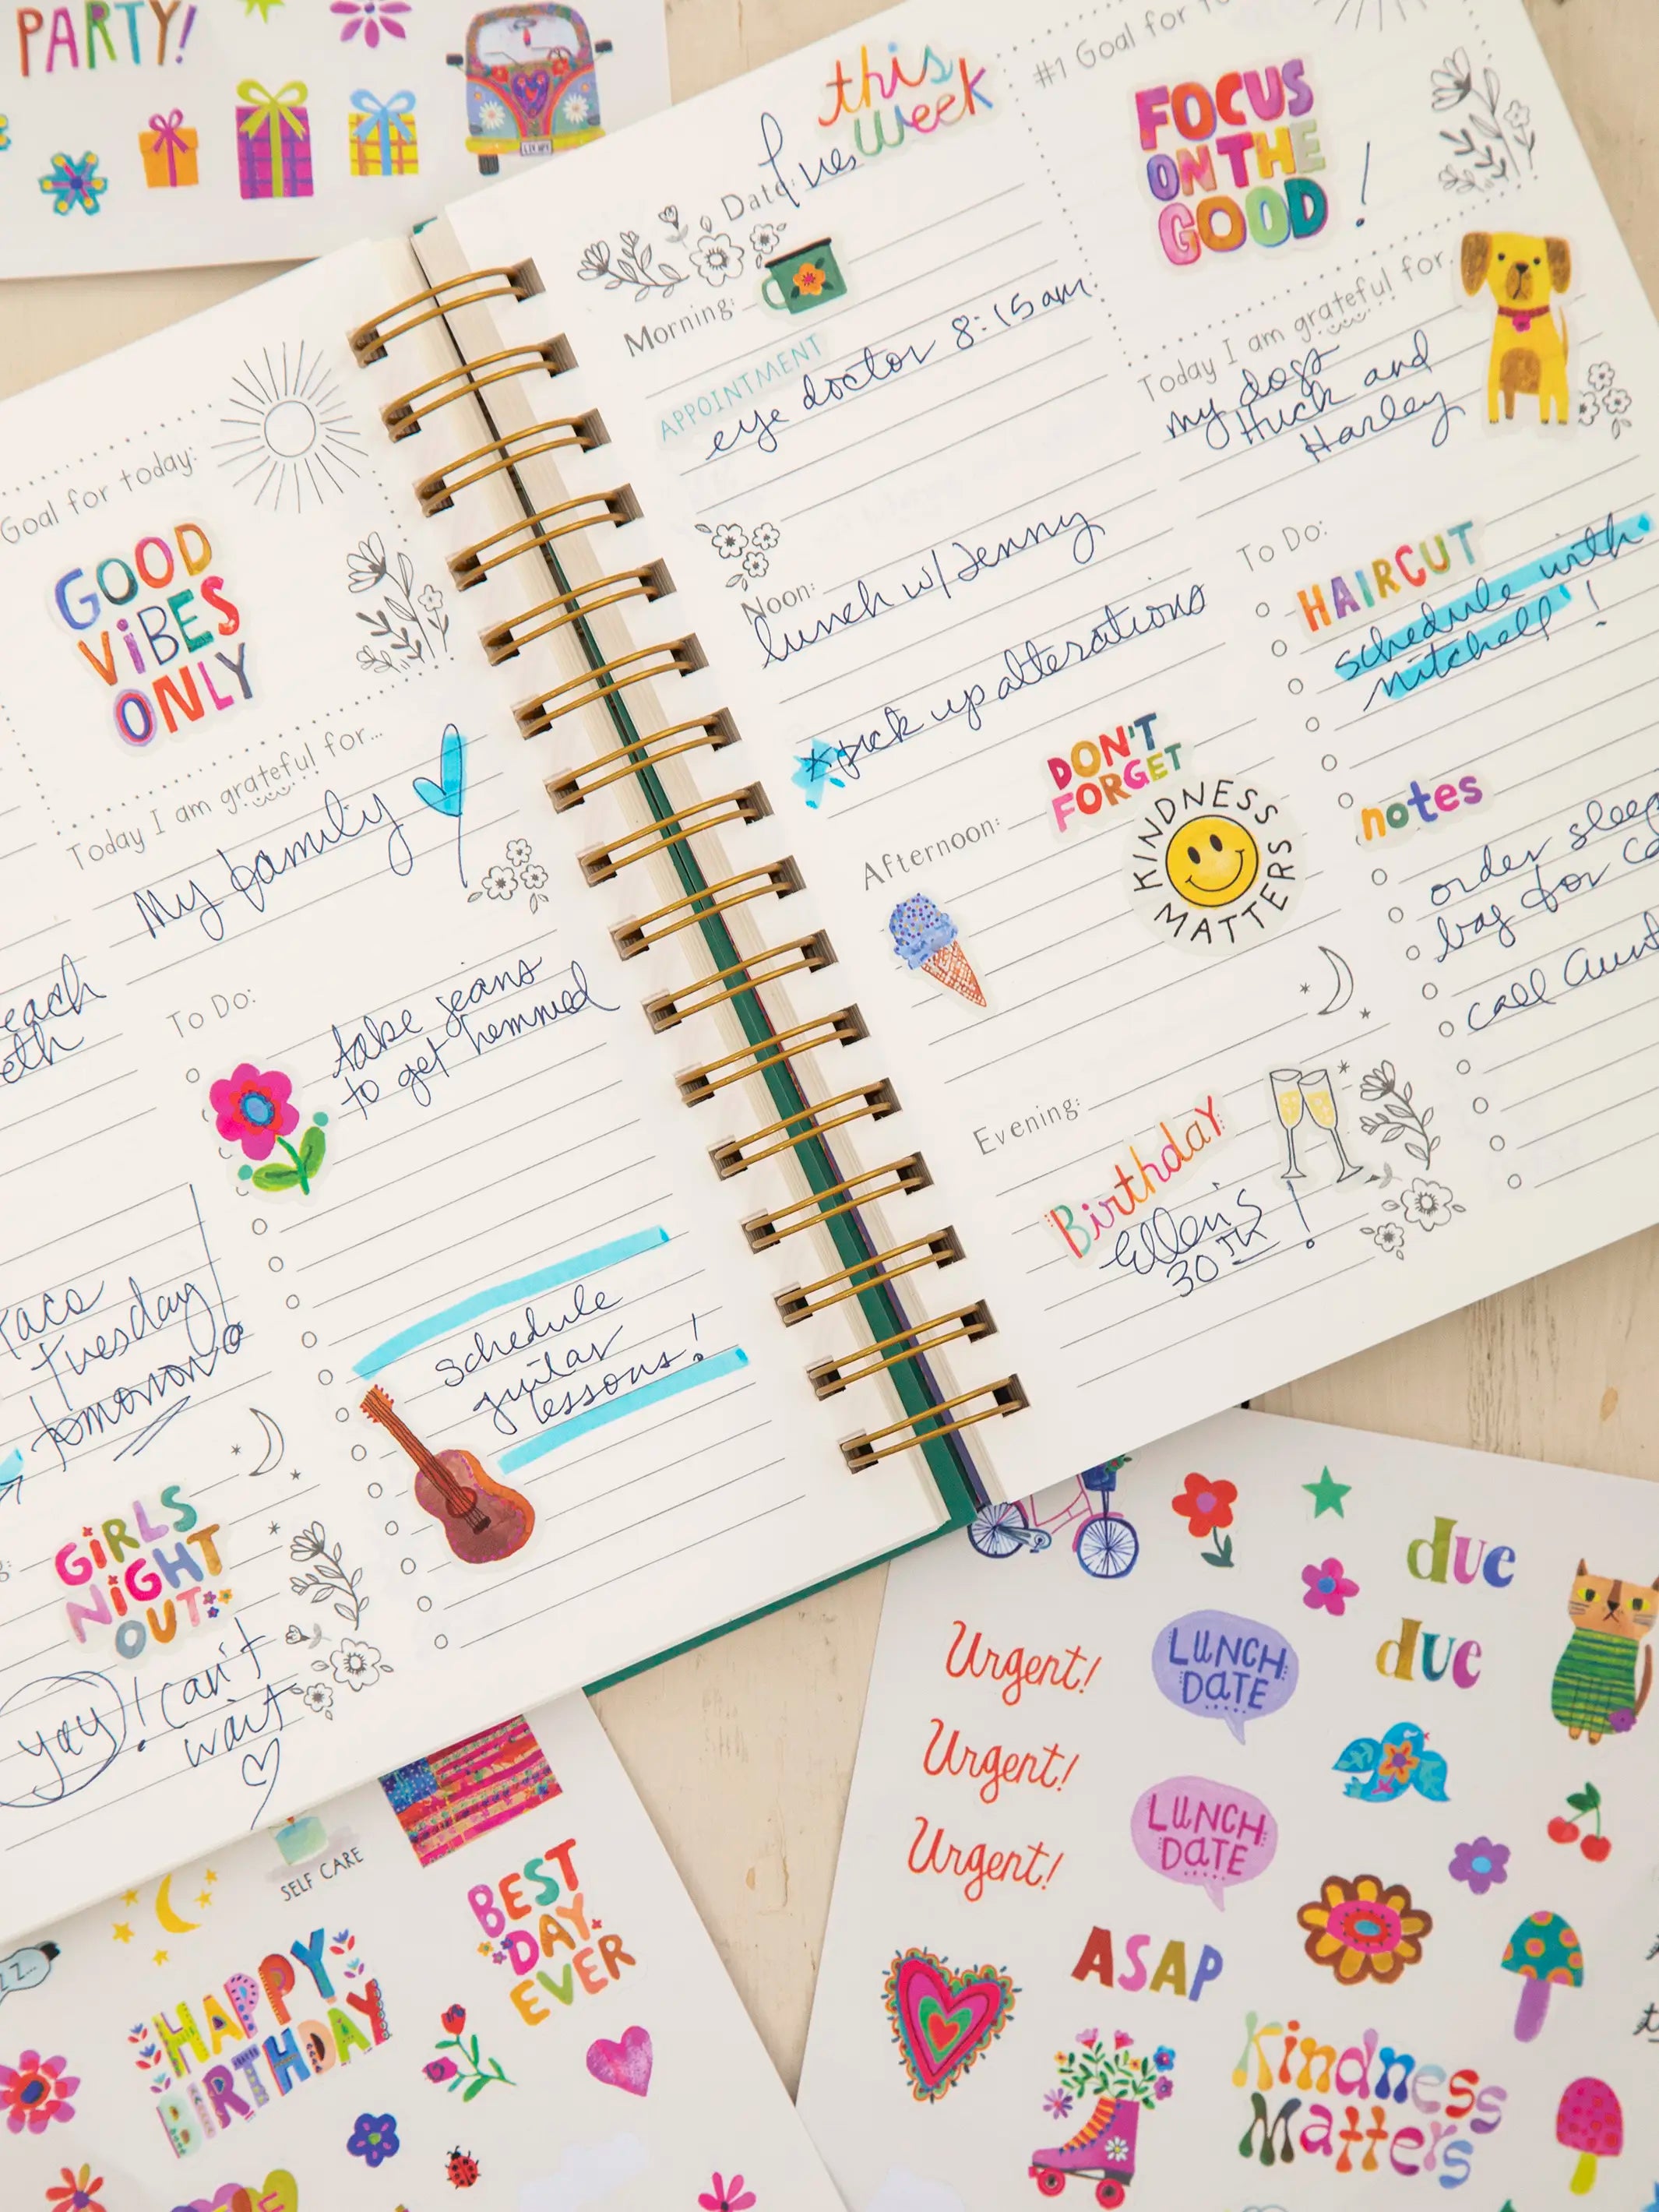 PARTY!
Goal for today:
GOOD
ViBES
ONLY
Today I am grateful for...
My family
To Do:
take jeans
to get hemmed
Taco
Tuesday
tomorrow
schedule
guitar
lessons!
GiRLS
NiGHT
OUT
yay! Can't
wait
this
week
Date: Tues
Morning:
APPOINTMENT
eye doctor 8:15 am
Noon:
lunch w/ Jenny
*pick up alterations
DON'T
FORGET
Afternoon:
KINDNESS
MATTERS
Evening:
Birthday
Ellen's
30TH!
#1 Goal for
FOCUS
ON THE
GOOD!
Today I am grateful for
my dogs
Huck and
Harley
To Do:
HAIRCUT
schedule with
mitchell!
notes
order
bag for
call Aunt
SELF CARE
BEST
DAY
EVER
HAPPY
BIRTHDAY
due
due
Urgent!
LUNCH
DATE
Urgent!
LUNCH
DATE
Urgent!
ASAP
Kindness
Matters